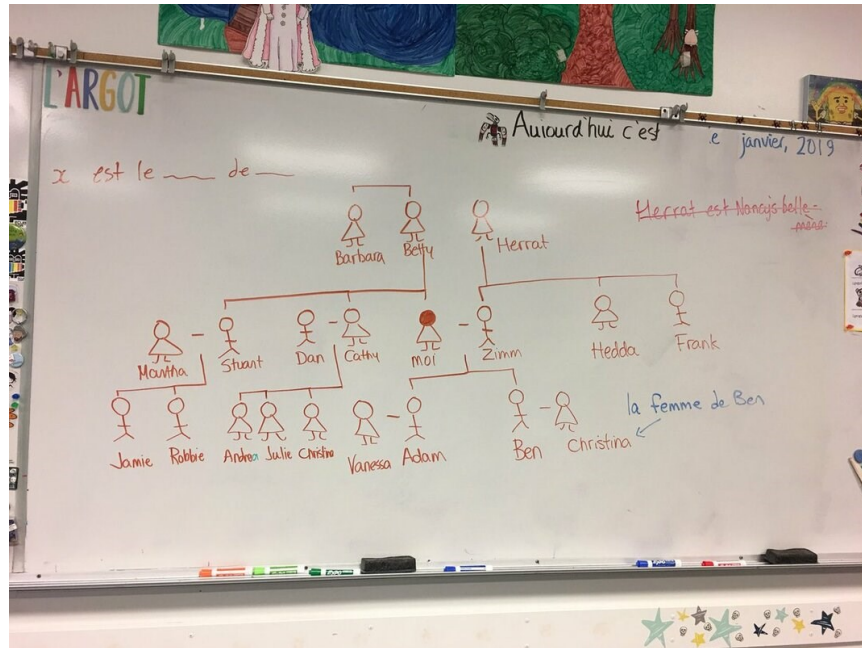 L'ARGOT
Aujourd'hui c'est e janvier, 2019
x est le ___ de ___
Herrat est Nancy's belle-
Barbara Betty Herrat
Martha Stuart Dan Cathy moi Zimm Hedda Frank
la femme de Ben
Jamie Robbie Andrea Julie Christine Vanessa Adam Ben Christina